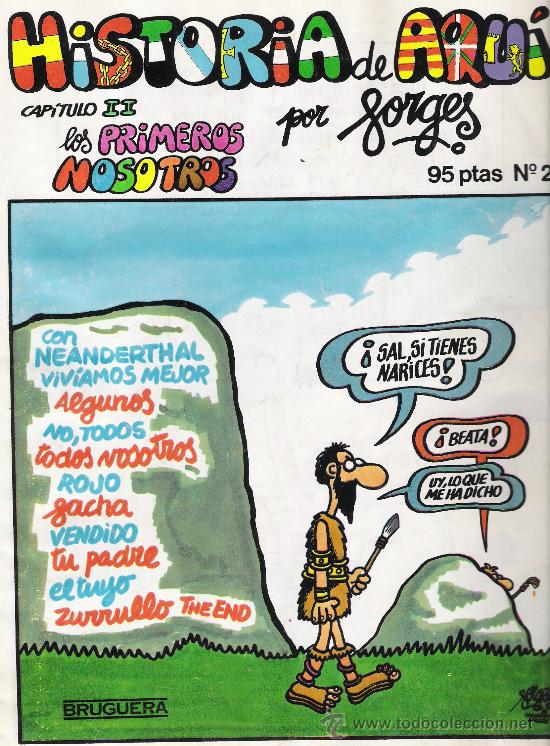 HISTORIA de AQUÍ
CAPÍTULO II
los PRIMEROS
NOSOTROS
por Forges
95 ptas Nº 2
con
NEANDERTHAL
VIVÍAMOS MEJOR
Algunos
NO, TODOS
todos NOSOTROS
ROJO
facha
VENDIDO
tu padre
el tuyo
zurrullo THE END
¡SAL, SI TIENES
NARICES!
¡BEATA!
UY, LO QUE
ME HA DICHO
Forges
BRUGUERA
www.todocoleccion.net